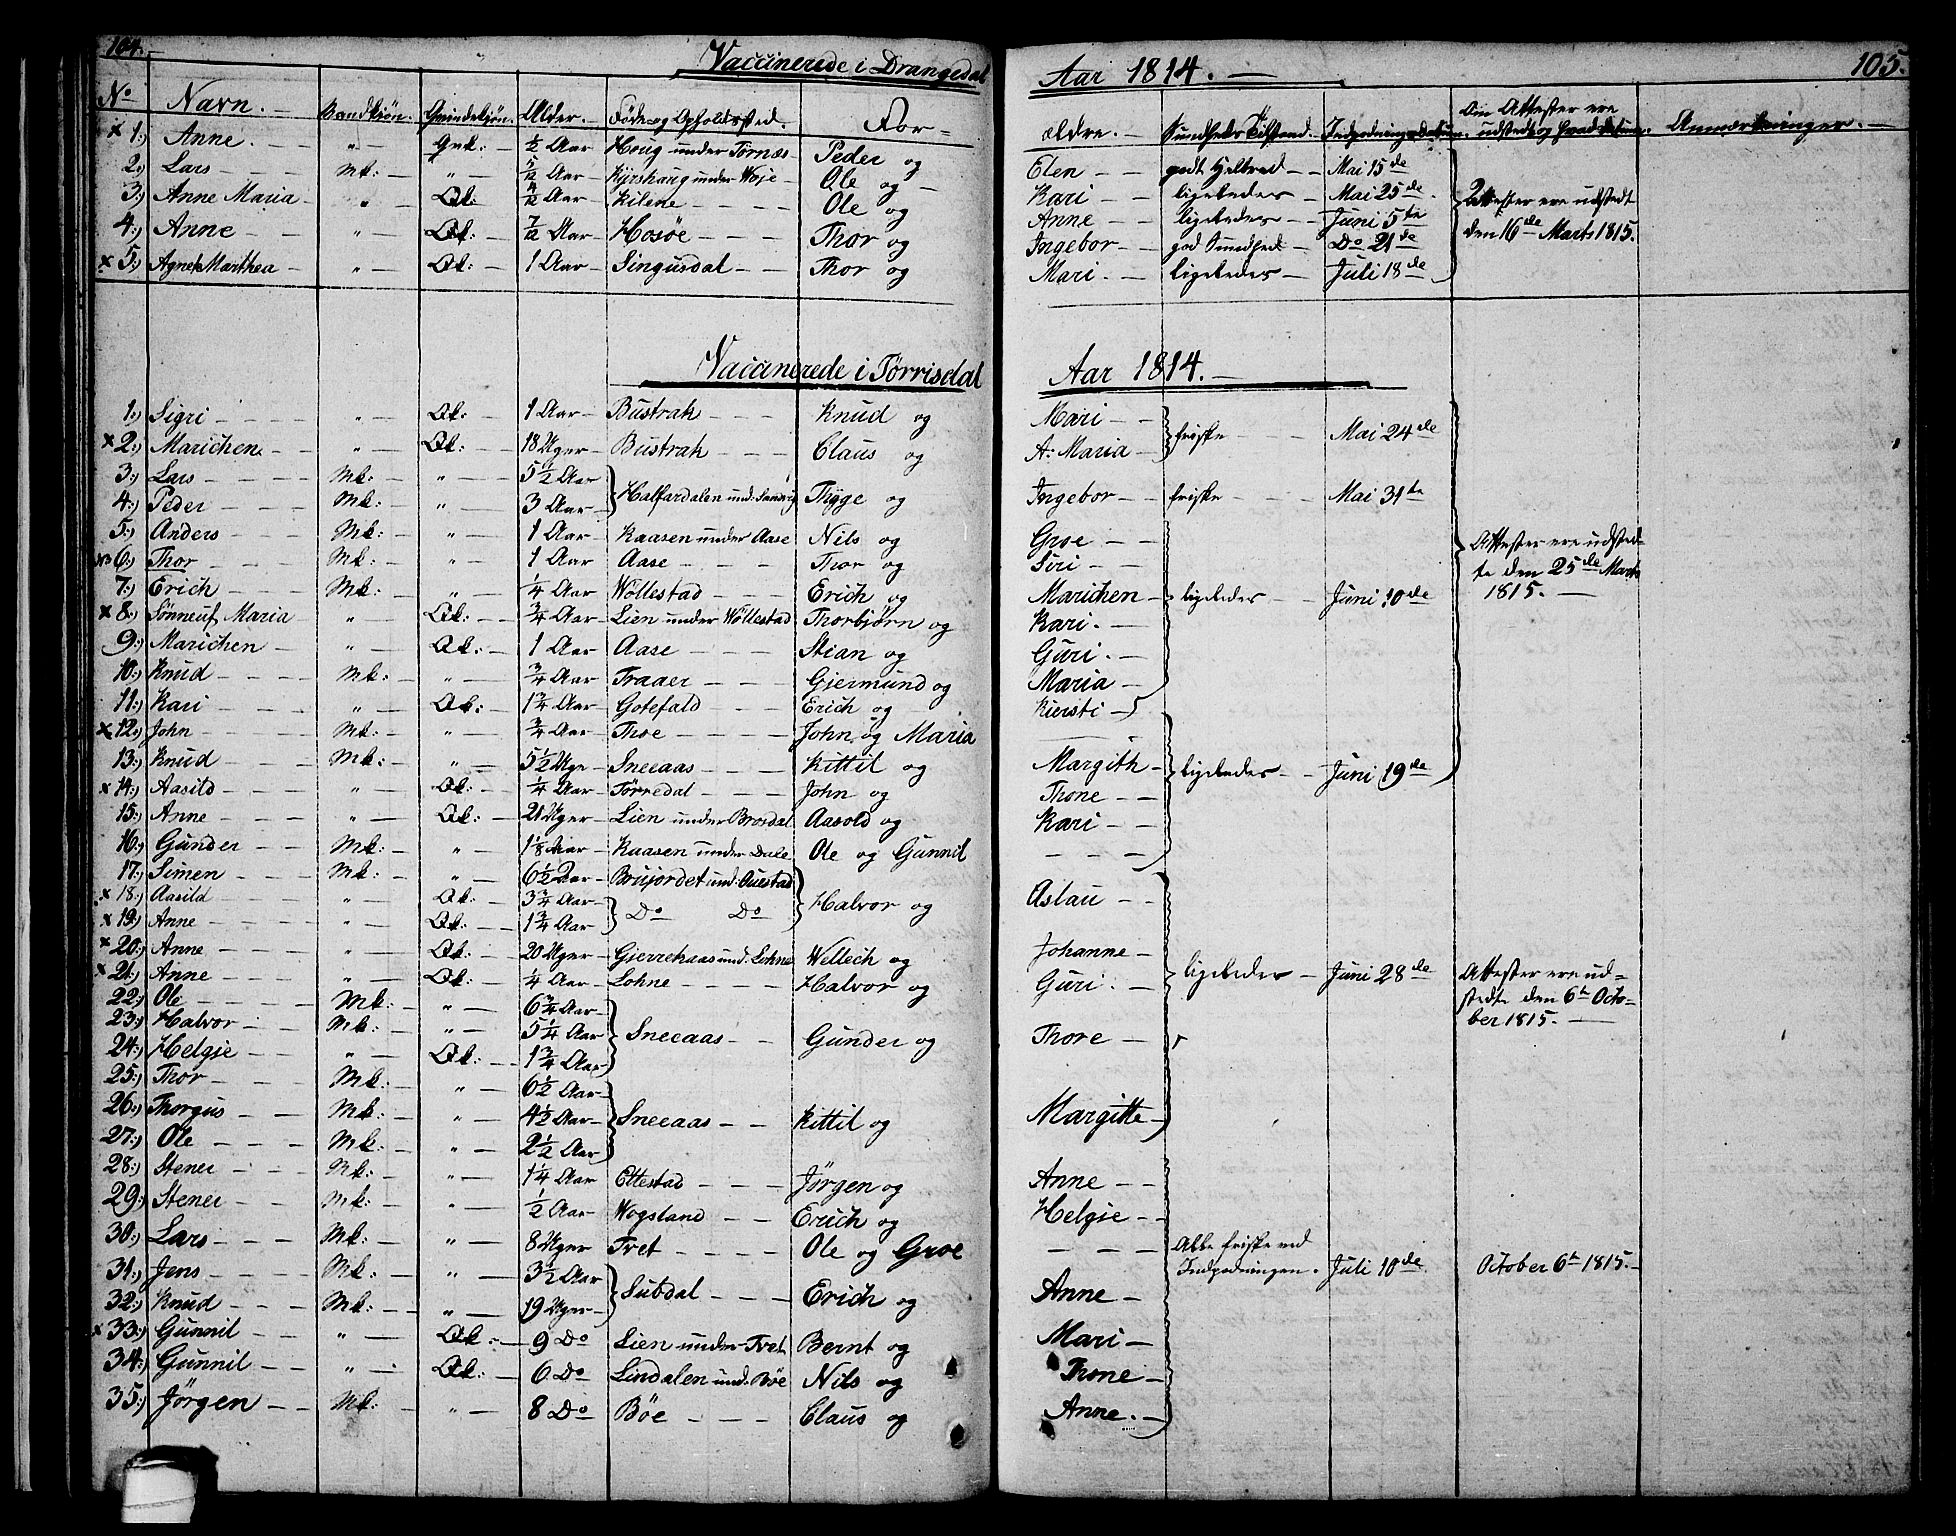 104.
Vaccinerede i Drangedal
No Navn. Mandkiön. Qvindekiön. Alder. Föde og Opholdssted. For-
x 1:) Anne. — " — Qvk: — ½ Aar Houg under Törnæs Peder og
2:) Lars — Mk: — " — 5/12 Aar Kyrshaug under Woje Ole og
3:) Anne Maria — " — Qk: 4/12 Aar Kilene — Ole og
4:) Anne — " — Qk: — 7/12 Aar Hosöe — Thor og
x 5:) Agnet Marthea — " — Qk: — 1 Aar Singusdal — Thor og
Vaccinerede i Törrisdal
1:) Sigri — " — Qk: — 1 Aar Bustrak — Knud og
x 2:) Marichen — " — Qk: — 18 Uger Bustrak — Claus og
3:) Lars — Mk: — " — 5½ Aar
4:) Peder — Mk: — " — 3 Aar Halfardalen und: Sandvig Thyge og
5:) Anders — Mk: — " — 1 Aar Kaasen under Aase Nils og
6:) Thor — Mk: — " — 1 Aar Aase — Thor og
7:) Erich — Mk: — " — ¼ Aar Wöllestad — Erich og
x 8:) Sönneuf Maria — " — Qk: — ¾ Aar Lien under Wöllestad Thorbjörn og
9:) Marichen — " — Qk: — 1 Aar Aase — Stian og
10:) Knud — Mk: — " — ¾ Aar Traaer — Gjermund og
11:) Kari — " — Qk: — 1¾ Aar Gotefald — Erich og
x 12:) John — Mk: — " — ¾ Aar Thoe — John og Maria
13:) Knud — Mk: — " — 5½ Uge Sneeaas — Kittil og
x 14:) Aasild — " — Qk: — ¼ Aar Törredal — John og
15:) Anne — " — Qk: — 21 Uger Lien under Brosdal Aasold og
16:) Gunder — Mk: — " — 1⅛ Aar Kaasen under Dale Ole og Gunnil
17:) Simen — Mk: — " — 6½ Aar Broujordet und: Ouestad
x 18:) Aasild — " — Qk: — 3¾ Aar Do Do Halvor og
x 19:) Anne — " — Qk: — 1¾ Aar
x 20:) Anne — " — Qk: — 20 Uger Gjerrehaas und: Lohne Wellech og
x 21:) Anne — " — Qk: — ¼ Aar Lohne — Halvor og
22:) Ole — Mk: — " — 6¾ Aar
23:) Halvor — Mk: — " — 5¼ Aar Sneeaas — Gunder og
24:) Helgie — " — Qk: — 1¾ Aar
25:) Thor — Mk: — " — 6½ Aar
26:) Thorgus — Mk: — " — 4½ Aar Sneeaas — Kittil og
27:) Ole — Mk: — " — 2½ Aar
28:) Stener — Mk: — " — 1¼ Aar Ettestad — Jörgen og
29:) Stener — Mk: — " — ½ Aar Wogsland — Erich og
30:) Lars — Mk: — " — 8 Uger Tvet — Ole og Groe
31:) Jens — Mk: — " — 3½ Aar
32:) Knud — Mk: — " — 19 Uger Subdal — Erich og
x 33:) Gunnil — " — Qk: — 9 Do Lien under Tvet Bernt og
34:) Gunnil — " — Qk: — 6 Do Lindalen und: Böe Nils og
35:) Jörgen — Mk: — " — 8 Do Böe — Claus og
105.
Aar 1814. —
ældre. — Sundheds Tilstand. Indpodnings Datum. Om Attester ere udstedt og hvad Datum. Anmærkninger. —
Elen — godt Helbred — Mai 15de
Kari — ligeledes — Mai 25de
Anne — ligeledes — Juni 5te Attester ere udstedt
Ingebor — god Sundhed — Do 21de den 16de Marts 1815.
Mari. — ligeledes — Juli 18de
Aar 1814. —
Mari —
A: Maria — friske — Mai 24de
Ingebor — friske — Mai 31te
Groe — Attester ere udsted-
Siri — te den 25de Marts
Marichen — ligeledes — Juni 10de 1815. —
Kari. —
Guri. —
Maria —
Kiersti —
Margith — ligeledes — Juni 19de
Thone —
Kari —
— — —
Aslau —
Johanne —
Guri. — ligeledes — Juni 28de Attester ere ud-
stedte den 6te Octo-
ber 1815. —
Thore —
Margitte —
Anne —
Helgie —
— — — Alle friske ved
Indpodningen. Juli 10de October 6te 1815. —
Anne —
Mari —
Thone —
Anne. —